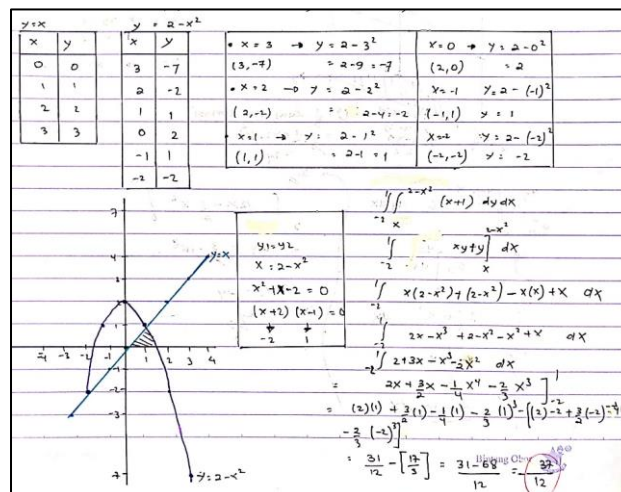 y=x
x y
0 0
1 1
2 2
3 3
y = 2-x²
x y
3 -7
2 -2
1 1
0 2
-1 1
-2 -2
• x = 3 → y = 2-3²
(3,-7) = 2-9 = -7
• x = 2 → y = 2-2²
(2,-2) = 2-4 = -2
• x = 1 → y = 2-1²
(1,1) = 2-1 = 1
x=0 → y = 2-0²
(2,0) = 2
x=-1 y= 2-(-1)²
(-1,1) y = 1
x=-2 y= 2-(-2)²
(-2,-2) y = -2
y=x
y=2-x²
y1 = y2
x = 2-x²
x²+x-2 = 0
(x+2) (x-1) = 0
-2 1
-2∫1 x∫2-x² (x+1) dy dx
-2∫1 xy+y]x 2-x² dx
-2∫1 x(2-x²)+(2-x²) - x(x)+x dx
-2∫1 2x-x³+2-x²-x²+x dx
-2∫1 2+3x-x³-2x² dx
= 2x+3/2x-1/4x⁴-2/3x³]-2 1
= (2)(1)+3/2(1)-1/4(1)-2/3(1)³-[(2)-2+3/2(-2)-4
-2/3(-2)³]
= 31/12 - [17/3] = 31-68/12 = -37/12